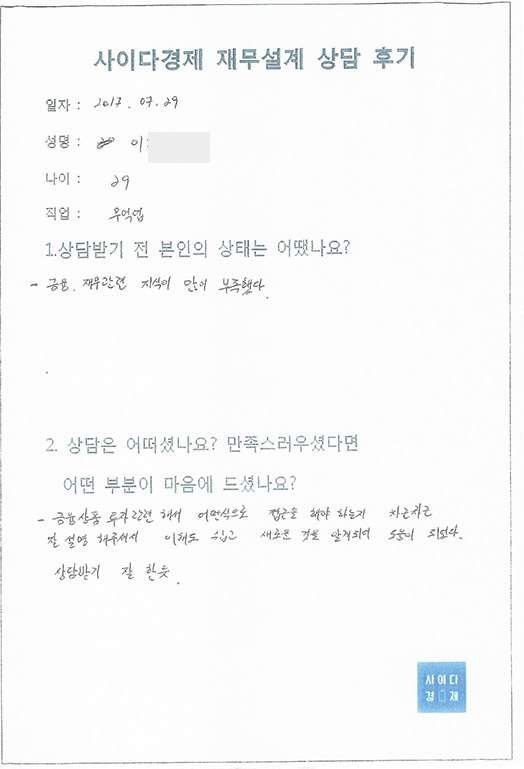 사이다경제 재무설계 상담 후기
일자 : 2017. 07. 29
성명 : 이
나이 : 29
직업 : 무역업
1.상담받기 전 본인의 상태는 어땠나요?
- 금융, 재무관련 지식이 많이 부족했다.
2. 상담은 어떠셨나요? 만족스러우셨다면
어떤 부분이 마음에 드셨나요?
- 금융상품 투자관련 해서 어떤식으로 접근을 해야 하는지 차근차근
잘 설명 해주셔서 이해도 쉽고 새로운 것을 알게되어 도움이 되었다.
상담받기 잘 한듯.
사이다
경제